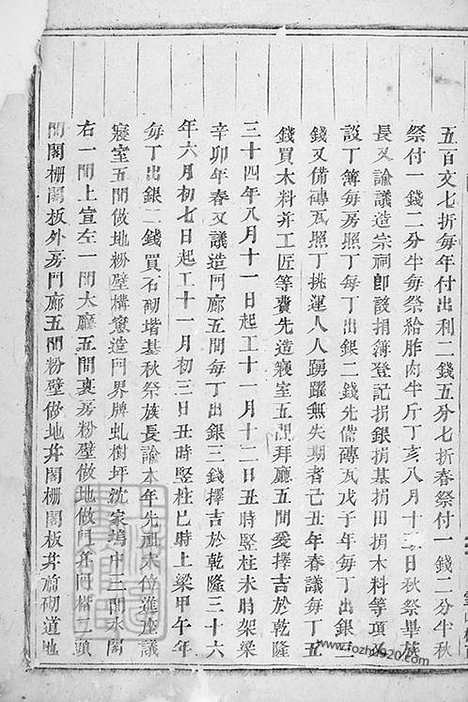 五百文七折每年付出利二錢五分七折春祭付一錢二分半秋
祭付一錢二分半每祭給胙肉半斤丁亥八月十五日秋祭畢族
長又諭議造宗祠卽設捐簿登記捐銀捐基捐田捐木料等項又
設丁簿每房照丁每丁出銀二錢先備磚瓦戊子年每丁出銀二
錢又備磚瓦照丁挑運人人踴躍無失期者己丑年春議每丁五
錢買木料并工匠等費先造寢室五間拜廳五間爰擇吉於乾隆
三十四年八月十一日起工十一月十二日丑時竪柱未時架梁
辛卯年春又議造門廊五間每丁出銀三錢擇吉於乾隆三十六
年六月初七日起工十一月初三日丑時竪柱巳時上梁甲午年
每丁出銀二錢買石砌堦基秋祭族長諭本年先風未位進座議
寢室五間做地粉壁構竈造門界牌虬樹坪沈家塢中二間水閣
右一間上宣左一間大廳五間裏房粉壁做地做門并門檻二頭
間閣柵閣板外房門廊五間粉壁做地并閣柵閣板并前砌道地
www.fozhu920.com